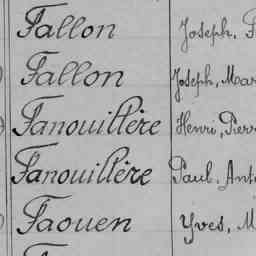 Fallon Joseph,
Fallon Joseph, Mar
Fanouillère Henri, Pierr
Fanouillère Paul, Anto
Faouen Yves, M